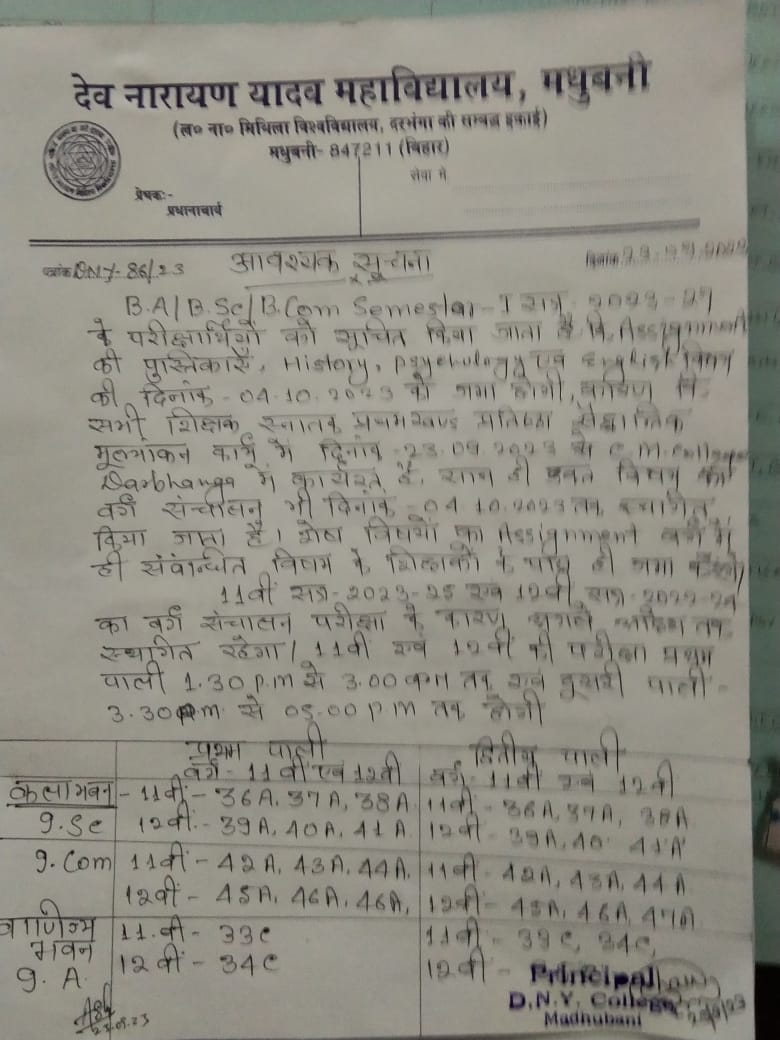 देव नारायण यादव महाविद्यालय, मधुबनी
(ल० ना० मिथिला विश्वविद्यालय, दरभंगा की सम्बद्ध इकाई)
मधुबनी- 847211 (बिहार)
प्रेषक:-
प्रधानाचार्य
सेवा में
पत्रांक DNY- 86/23
आवश्यक सूचना
दिनांक
B.A/B.Sc/B.Com Semester-I सत्र 2023-27
के परीक्षार्थियों को सूचित किया जाता है कि Assignment
की पुस्तिकाएँ, History, Psychology एवं English विषय
की दिनांक - 04.10.2023 को जमा होगी,
सभी शिक्षक स्नातक प्रथमखण्ड प्रतिष्ठा सैद्धान्तिक
मूल्यांकन कार्य में दिनांक 23.09.2023 से C.M. College
Darbhanga में कार्यरत हैं, साथ ही उक्त विषय का
वर्ग संचालन भी दिनांक - 04.10.2023 तक स्थगित
किया जाता है। शेष विषयों का Assignment वर्ग में
ही संबंन्धित विषय के शिक्षकों के पास ही जमा
11वीं सत्र-2023-25 एवं 12वीं सत्र-2022-24
का वर्ग संचालन परीक्षा के कारण अगले आदेश तक
स्थगित रहेगा। 11वीं एवं 12वीं की परीक्षा प्रथम
पाली 1.30 P.M से 3.00 बजे तक एवं दुसरी पाली-
3.30 P.M. से 05.00 P.M तक होगी
प्रथम पाली
द्वितीय पाली
वर्ग- 11वीं एवं 12वीं
वर्ग- 11वीं एवं 12वीं
कलाभवन - 11वीं - 36A, 37A, 38A
11वीं - 36A, 37A, 38A
I.Sc 12वीं - 39A, 40A, 41A
12वीं - 39A, 40 41A
I.Com 11वीं - 42A, 43A, 44A,
11वीं - 42A, 43A, 44A
12वीं - 45A, 46A, 46A,
12वीं - 45A, 46A, 47A
वाणिज्य
भवन
I.A.
11.वीं - 33C
11वीं - 33C, 34C,
12वीं - 34C
12वीं -
Principal
D.N.Y. College
Madhubani